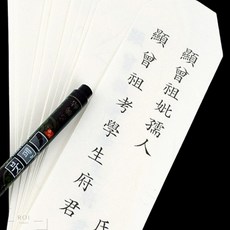 顯曾祖妣孺人 氏
顯曾祖考學生府君